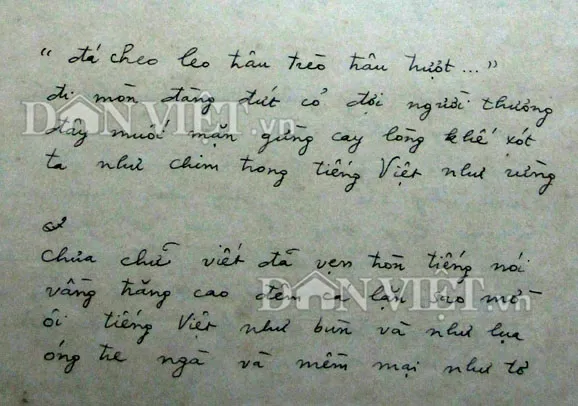 “ đá cheo leo trâu trèo trâu trượt...”
đi mòn đàng đứt cỏ đợi người thương
đây muối mặn gừng cay lòng khế xót
ta như chim trong tiếng Việt như rừng
2
Chưa chữ viết đã vẹn tròn tiếng nói
vầng trăng cao đêm cá lặn sao mờ
ôi tiếng Việt như bùn và như lụa
óng tre ngà và mềm mại như tơ
DÂNVIỆT.vn
DÂNVIỆT.vn